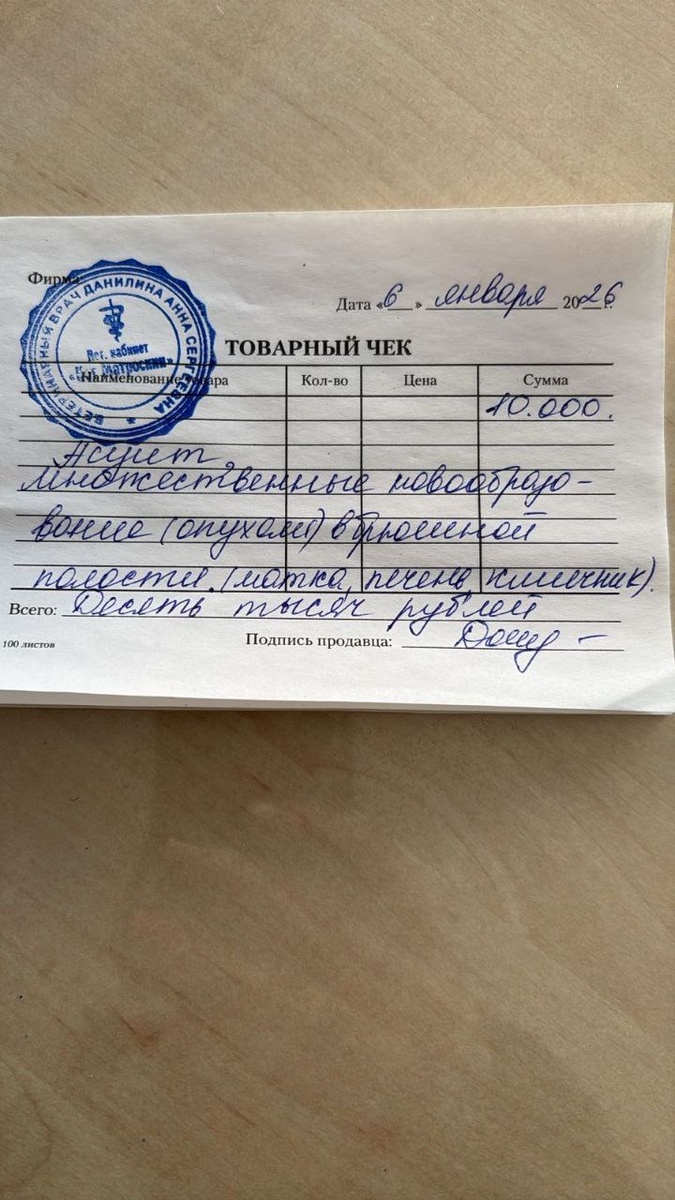 Фирма
ВЕТЕРИНАРНЫЙ ВРАЧ ДАНИЛИНА АННА СЕРГЕЕВНА
Вет. кабинет
«Кот Матроскин»
Дата «6» января 2026 г.
ТОВАРНЫЙ ЧЕК
Наименование товара Кол-во Цена Сумма
10.000.
Асцит,
множественные новообразо-
вание (опухоли) в брюшной
полости (матка, печень, кишечник).
Всего: Десять тысяч рублей
100 листов
Подпись продавца: